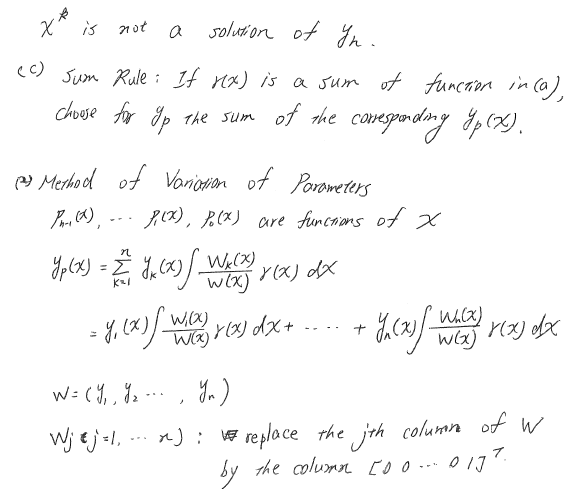 x^k is not a solution of y_h.
(c) Sum Rule: If r(x) is a sum of function in (a),
choose for y_p the sum of the corresponding y_p(x).
(2) Method of Variation of Parameters
P_{n-1}(x), ... P_1(x), P_0(x) are functions of x
y_p(x) = \sum_{k=1}^{n} y_k(x) ∫ \frac{W_k(x)}{W(x)} r(x) dx
= y_1(x) ∫ \frac{W_1(x)}{W(x)} r(x) dx + ..... + y_n(x) ∫ \frac{W_n(x)}{W(x)} r(x) dx
W = (y_1, y_2 ... , y_n)
W_j (j=1, ... n) : replace the jth column of W
by the column [0 0 ... 0 1]^T.